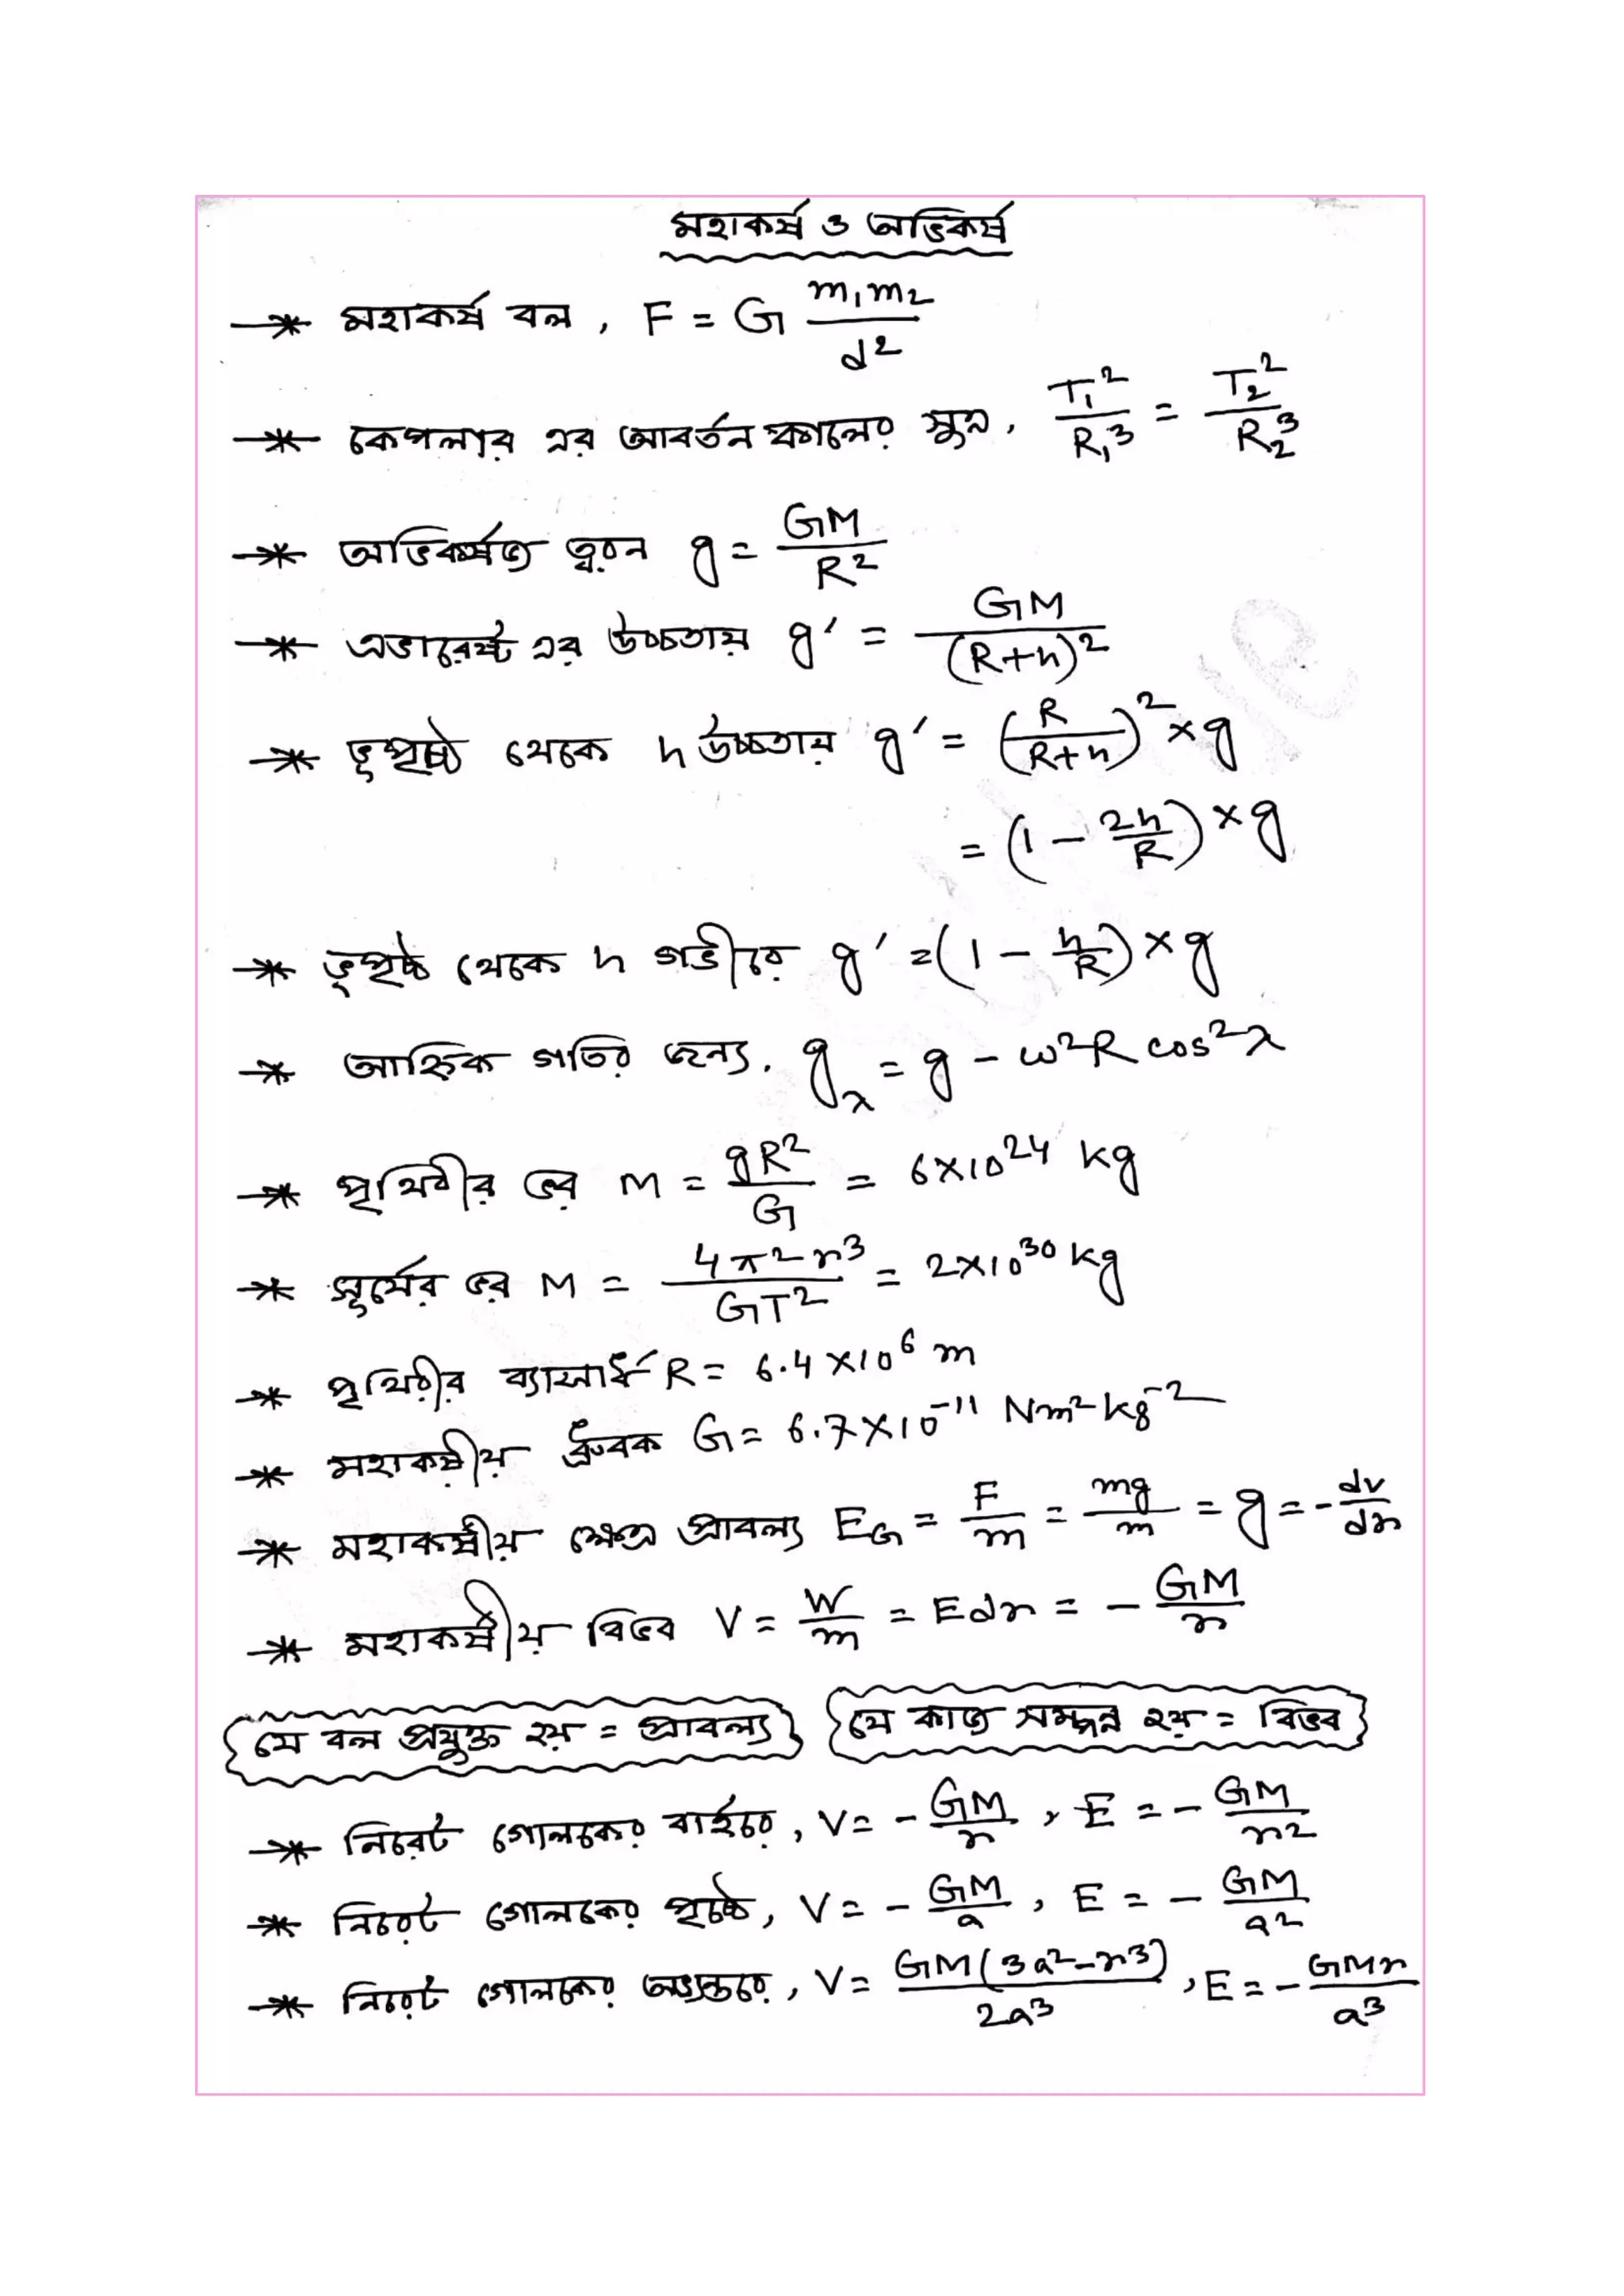 মহাকর্ষ ও অভিকর্ষ
→* মহাকর্ষ বল, F = G m₁m₂/d²
→* কেপলার এর আবর্তন কালের সুত্র, T₁²/R₁³ = T₂²/R₂³
→* অভিকর্ষজ ত্বরন g = GM/R²
→* এভারেস্ট এর উচ্চতায় g' = GM/(R+h)²
→* ভূপৃষ্ঠ থেকে h উচ্চতায় g' = (R/(R+h))² × g
= (1 - 2h/R) × g
→* ভূপৃষ্ঠ থেকে h গভীরে g' = (1 - h/R) × g
→* আহ্নিক গতির জন্য, g_λ = g - ω²R cos²λ
→* পৃথিবীর ভর M = gR²/G = 6×10²⁴ kg
→* সূর্যের ভর M = 4π²r³/GT² = 2×10³⁰ kg
→* পৃথিবীর ব্যাসার্ধ R = 6.4×10⁶ m
→* মহাকর্ষীয় ধ্রুবক G = 6.7×10⁻¹¹ Nm²kg⁻²
→* মহাকর্ষীয় ক্ষেত্র প্রাবল্য E_G = F/m = mg/m = g = - dv/dr
→* মহাকর্ষীয় বিভব V = W/m = Edr = - GM/r
{যে বল প্রযুক্ত হয় = প্রাবল্য} {যে কাজ সম্পন্ন হয় = বিভব}
→* নিরেট গোলকের বাইরে, V = - GM/r, E = - GM/r²
→* নিরেট গোলকের পৃষ্ঠে, V = - GM/a, E = - GM/a²
→* নিরেট গোলকের অভ্যন্তরে, V = GM(3a²-r³)/2a³, E = - GMr/a³